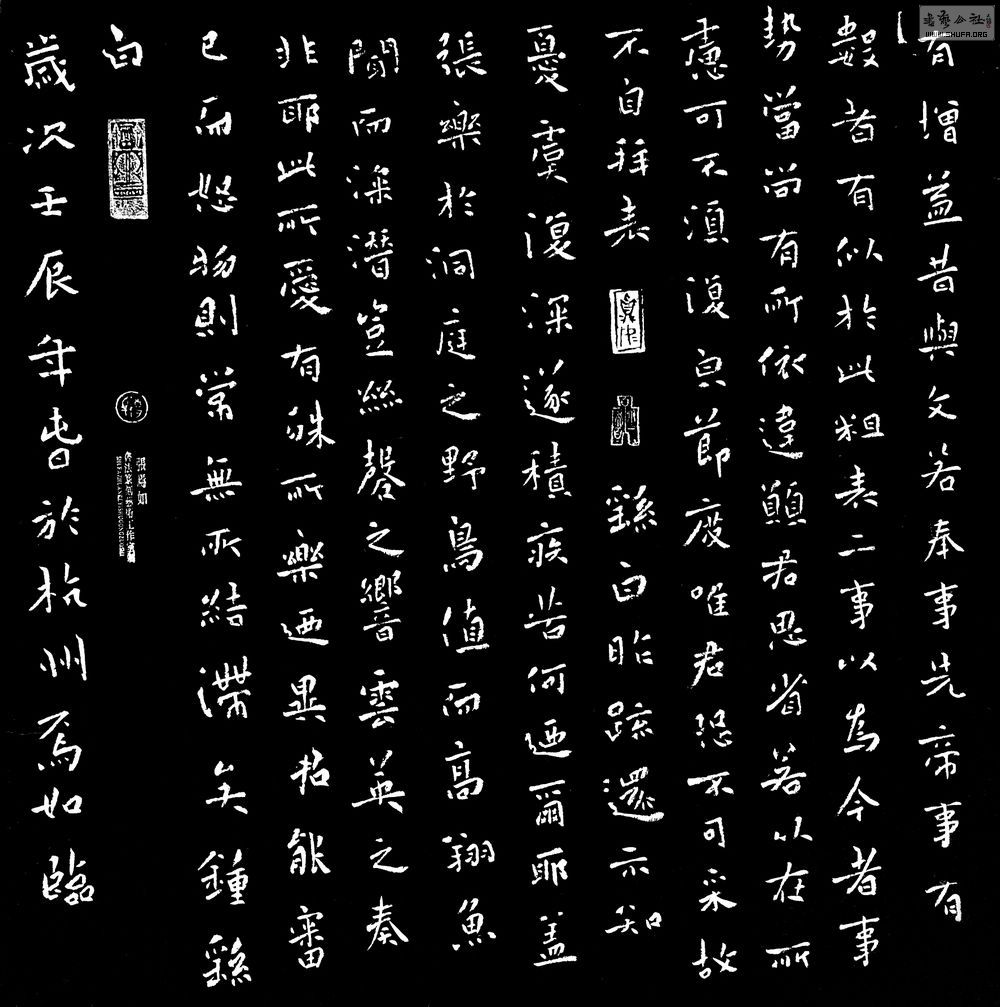 有增益昔與文若奉事先帝事有
數者有似於此粗表二事以為今者事
勢當尚有所依違願君思省若以在所
慮可不須復皃節度唯君恐不可采故
不自拜表
繇白昨疏還示知
憂虞復深遂積疾苦何迺爾耶蓋
張樂於洞庭之野鳥值而高翔魚
聞而深潛豈絲磬之響雲英之奏
非耶此所愛有殊所樂迺異君能審
己而恕物則常無所結滯矣鍾繇
白
歲次壬辰年春於杭州為如臨
張為如
書法篆刻藝術工作室
書藝公社
WWW.SHUFA.ORG